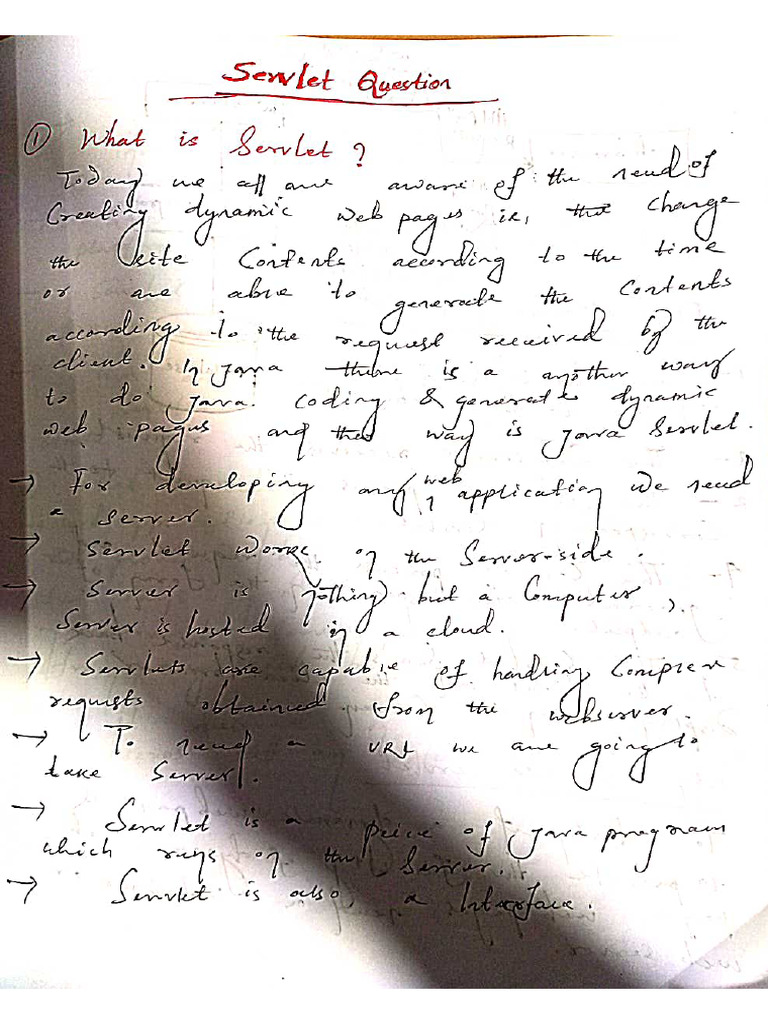 Servlet Question
① What is Servlet ?
Today we all are aware of the need of
Creating dynamic web pages ie, the change
the site Contents according to the time
or are able to generate the Contents
according to the request received by the
client. In Java there is a another way
to do Java coding & generate dynamic
web pages and the way is Java Servlet.
→ For developing any web application we need
a server.
→ Servlet works on the Server-side.
→ Server is nothing but a Computer,
Server is hosted in a cloud.
→ Servlets are capable of handling Complex
requests obtained from the webserver.
→ To need a URL we are going to
take Server.
→ Servlet is a peice of Java program
which runs on the Server.
→ Servlet is also a Interface.